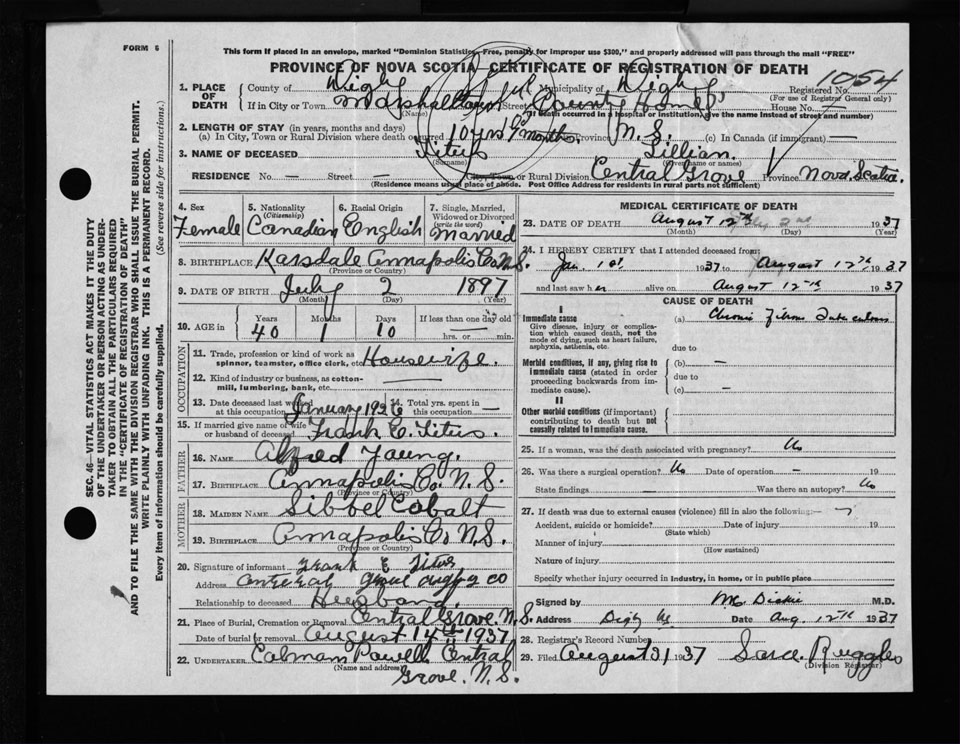 FORM 6
This form if placed in an envelope, marked "Dominion Statistics—Free, penalty for improper use $300," and properly addressed will pass through the mail "FREE"
PROVINCE OF NOVA SCOTIA—CERTIFICATE OF REGISTRATION OF DEATH
1. PLACE OF DEATH County of Digby Municipality of Digby Registered No. 1054
(For use of Registrar General only)
If in City or Town Marshalltown Street County Home House No. —
(Name) (If death occurred in a hospital or institution, give the name instead of street and number)
2. LENGTH OF STAY (in years, months and days)
(a) In City, Town or Rural Division where death occurred 10 yrs 9 months Province N.S. (c) In Canada (if immigrant) —
3. NAME OF DECEASED Titus Lillian.
(Surname) (Given name or names)
RESIDENCE No. — Street — City, Town or Rural Division Central Grove Province Nova Scotia.
(Residence means usual place of abode. Post Office Address for residents in rural parts not sufficient)
4. Sex Female
5. Nationality (Citizenship) Canadian
6. Racial Origin English
7. Single, Married, Widowed or Divorced (write the word) Married
8. BIRTHPLACE Karsdale Annapolis Co N.S.
(Province or Country)
9. DATE OF BIRTH July 2 1897
(Month) (Day) (Year)
10. AGE in Years 40 Months 1 Days 10 If less than one day old — hrs. or — min.
OCCUPATION
11. Trade, profession or kind of work as spinner, teamster, office clerk, etc. Housewife.
12. Kind of industry or business, as cotton-mill, lumbering, bank, etc. —
13. Date deceased last worked at this occupation January 1926 14. Total yrs. spent in this occupation —
15. If married give name of wife or husband of deceased Frank E. Titus.
FATHER
16. NAME Alfred Young.
17. BIRTHPLACE Annapolis Co. N.S.
(Province or Country)
MOTHER
18. MAIDEN NAME Sibbel Cobalt
19. BIRTHPLACE Annapolis Co N.S.
(Province or Country)
20. Signature of informant Frank E Titus
Address Central Grove Digby Co
Relationship to deceased Husband
21. Place of Burial, Cremation or Removal Central Grove. N.S.
Date of burial or removal August 14th 1937
22. UNDERTAKER Colman Powell Central
(Name and address)
Grove. N.S.
MEDICAL CERTIFICATE OF DEATH
23. DATE OF DEATH August 12th 1937
(Month) (Day) (Year)
24. I HEREBY CERTIFY that I attended deceased from
Jan. 1st. 1937 to August 12th 1937
and last saw her alive on August 12th 1937
CAUSE OF DEATH
I
Immediate cause (a) Chronic
Give disease, injury or complication which caused death, not the mode of dying, such as heart failure, asphyxia, asthenia, etc.
due to
Morbid conditions, if any, giving rise to immediate cause (stated in order proceeding backwards from immediate cause).
(b) —
due to
(c) —
II
Other morbid conditions (if important) contributing to death but not causally related to immediate cause.
25. If a woman, was the death associated with pregnancy? No
26. Was there a surgical operation? No Date of operation — 19
State findings — Was there an autopsy? No
27. If death was due to external causes (violence) fill in also the following:—
Accident, suicide or homicide? Date of injury 19
(State which)
Manner of injury
(How sustained)
Nature of injury
Specify whether injury occurred in industry, in home, or in public place
Signed by Dickie M.D.
Address Digby NS Date Aug. 12th 1937
28. Registrar's Record Number
29. Filed August 31 1937 Sara Ruggles
(Division Registrar)
SEC. 46—VITAL STATISTICS ACT MAKES IT THE DUTY
OF THE UNDERTAKER OR PERSON ACTING AS UNDER-
TAKER TO OBTAIN ALL THE PARTICULARS REQUIRED
IN THE "CERTIFICATE OF REGISTRATION OF DEATH"
AND TO FILE THE SAME WITH THE DIVISION REGISTRAR WHO SHALL ISSUE THE BURIAL PERMIT.
WRITE PLAINLY WITH UNFADING INK. THIS IS A PERMANENT RECORD.
Every item of information should be carefully supplied. (See reverse side for instructions.)